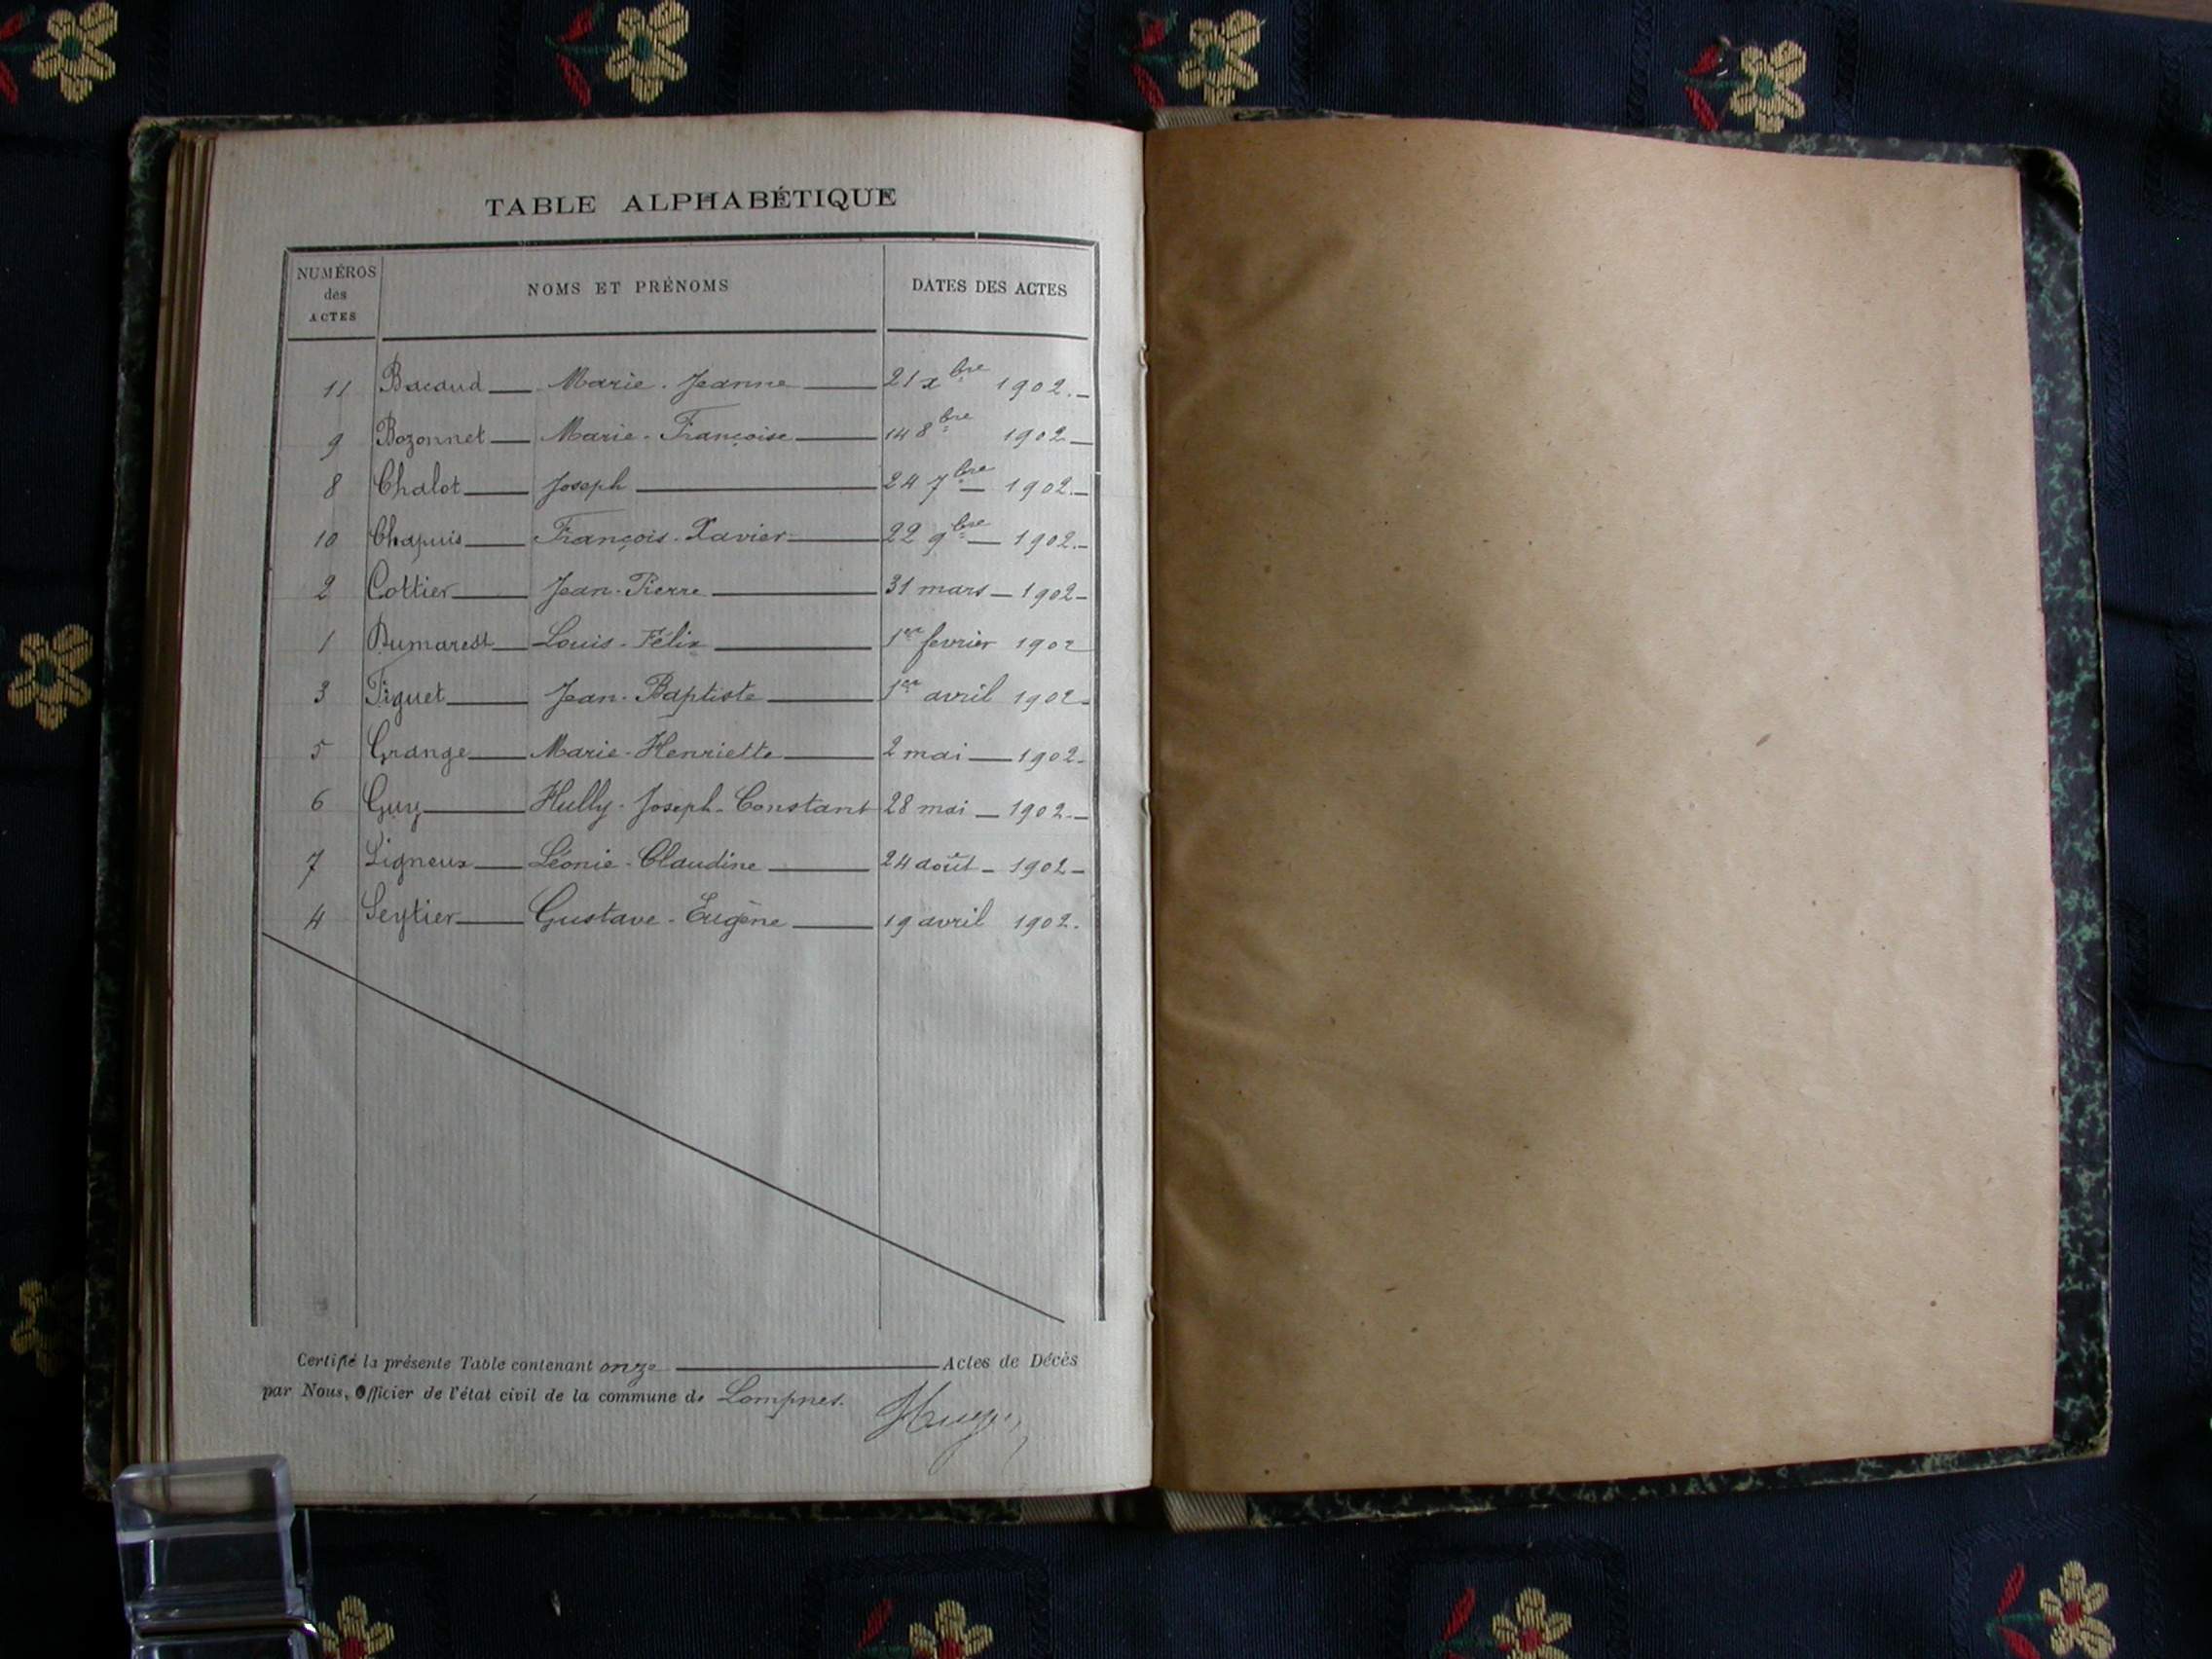 TABLE ALPHABÉTIQUE
NUMÉROS des ACTES NOMS ET PRÉNOMS DATES DES ACTES
11 Bacaud Marie-Jeanne 21 xbre 1902.
9 Bozonnet Marie-Françoise 14 8bre 1902
8 Chalot Joseph 24 7bre 1902.
10 Chapuis François-Xavier 22 9bre 1902.
2 Cottier Jean-Pierre 31 mars 1902
1 Dumarest Louis-Félix 1er fevrier 1902
3 Figuet Jean-Baptiste 1er avril 1902
5 Grange Marie-Henriette 2 mai 1902
6 Guy Hully-Joseph-Constant 28 mai 1902.
7 Ligneux Léonie-Claudine 24 août 1902
4 Seytier Gustave-Eugène 19 avril 1902.
Certifié la présente Table contenant onze Actes de Décès
par Nous, Officier de l'état civil de la commune de Lompnes.